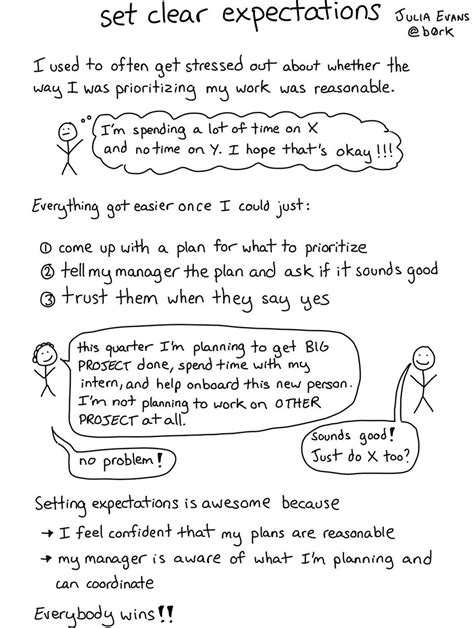 set clear expectations
JULIA EVANS
@b0rk
I used to often get stressed out about whether the
way I was prioritizing my work was reasonable.
I'm spending a lot of time on X
and no time on Y. I hope that's okay!!!
Everything got easier once I could just:
① come up with a plan for what to prioritize
② tell my manager the plan and ask if it sounds good
③ trust them when they say yes
this quarter I'm planning to get BIG
PROJECT done, spend time with my
intern, and help onboard this new person.
I'm not planning to work on OTHER
PROJECT at all.
sounds good!
Just do X too?
no problem!
Setting expectations is awesome because
→ I feel confident that my plans are reasonable
→ my manager is aware of what I'm planning and
can coordinate
Everybody wins!!